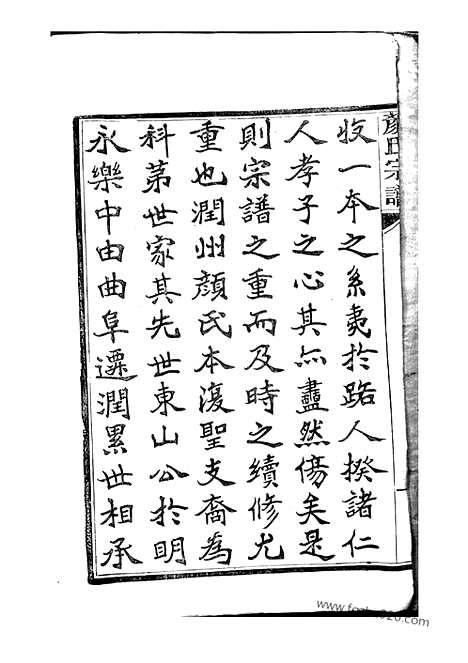 顏氏宗譜
收一本之系夷於路人揆諸仁
人孝子之心其亦盡然傷矣是
則宗譜之重而及時之續修尤
重也潤州顏氏本復聖支裔為
科苐世家其先世東山公於明
永樂中由曲阜遷潤累世相承